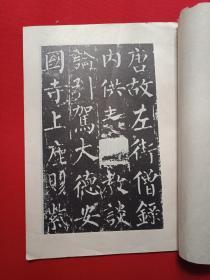 唐故左街僧錄
內供奉三教談
論引駕大德安
國寺上座賜紫